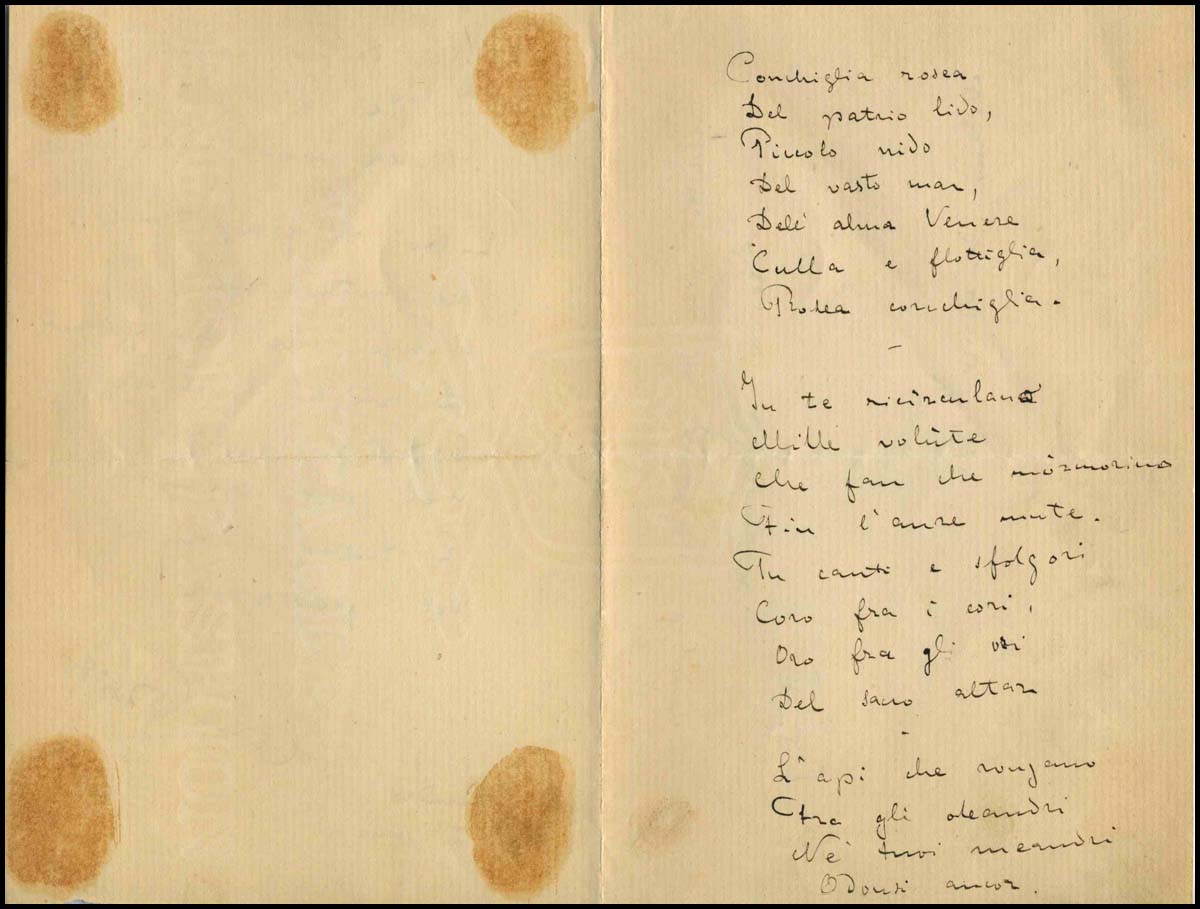 Conchiglia rosea
Del patrio lido,
Piccolo nido
Del vasto mar,
Dell' alma Venere
Culla e flottiglia,
Rosea conchiglia.
In te ricircolano
Mille volùte
Che fan che mòrmorino
Fin l'aure mute.
Tu canti e sfolgori
Coro fra i cori,
Oro fra gli ori
Del sacro altar
L'api che ronzano
Fra gli oleandri
Ne' tuoi meandri
Odonsi ancor.